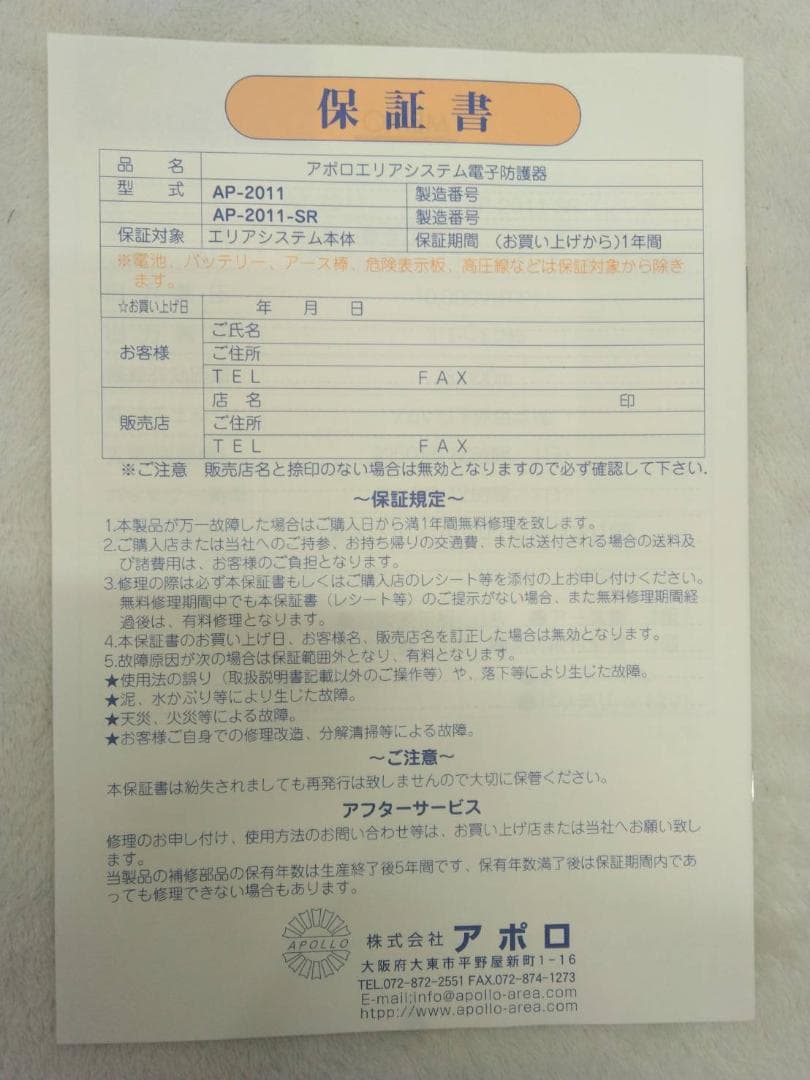 保証書
品　名　アポロエリアシステム電子防護器
型　式　AP-2011　製造番号
AP-2011-SR　製造番号
保証対象　エリアシステム本体　保証期間　(お買い上げから)1年間
※電池、バッテリー、アース棒、危険表示板、高圧線などは保証対象から除き
ます。
☆お買い上げ日　年　月　日
お客様
ご氏名
ご住所
TEL　FAX
販売店
店　名　印
ご住所
TEL　FAX
※ご注意　販売店名と捺印のない場合は無効となりますので必ず確認して下さい.
～保証規定～
1.本製品が万一故障した場合はご購入日から満1年間無料修理を致します。
2.ご購入店または当社へのご持参、お持ち帰りの交通費、または送付される場合の送料及
び諸費用は、お客様のご負担となります。
3.修理の際は必ず本保証書もしくはご購入店のレシート等を添付の上お申し付けください。
無料修理期間中でも本保証書（レシート等）のご提示がない場合、また無料修理期間経
過後は、有料修理となります。
4.本保証書のお買い上げ日、お客様名、販売店名を訂正した場合は無効となります。
5.故障原因が次の場合は保証範囲外となり、有料となります。
★使用法の誤り（取扱説明書記載以外のご操作等）や、落下等により生じた故障。
★泥、水かぶり等により生じた故障。
★天災、火災等による故障。
★お客様ご自身での修理改造、分解清掃等による故障。
～ご注意～
本保証書は紛失されましても再発行は致しませんので大切に保管ください。
アフターサービス
修理のお申し付け、使用方法のお問い合わせ等は、お買い上げ店または当社へお願い致し
ます。
当製品の補修部品の保有年数は生産終了後5年間です、保有年数満了後は保証期間内であ
っても修理できない場合もあります。
APOLLO
株式会社 アポロ
大阪府大東市平野屋新町1-16
TEL.072-872-2551 FAX.072-874-1273
E-mail;info@apollo-area.com
htpp://www.apollo-area.com